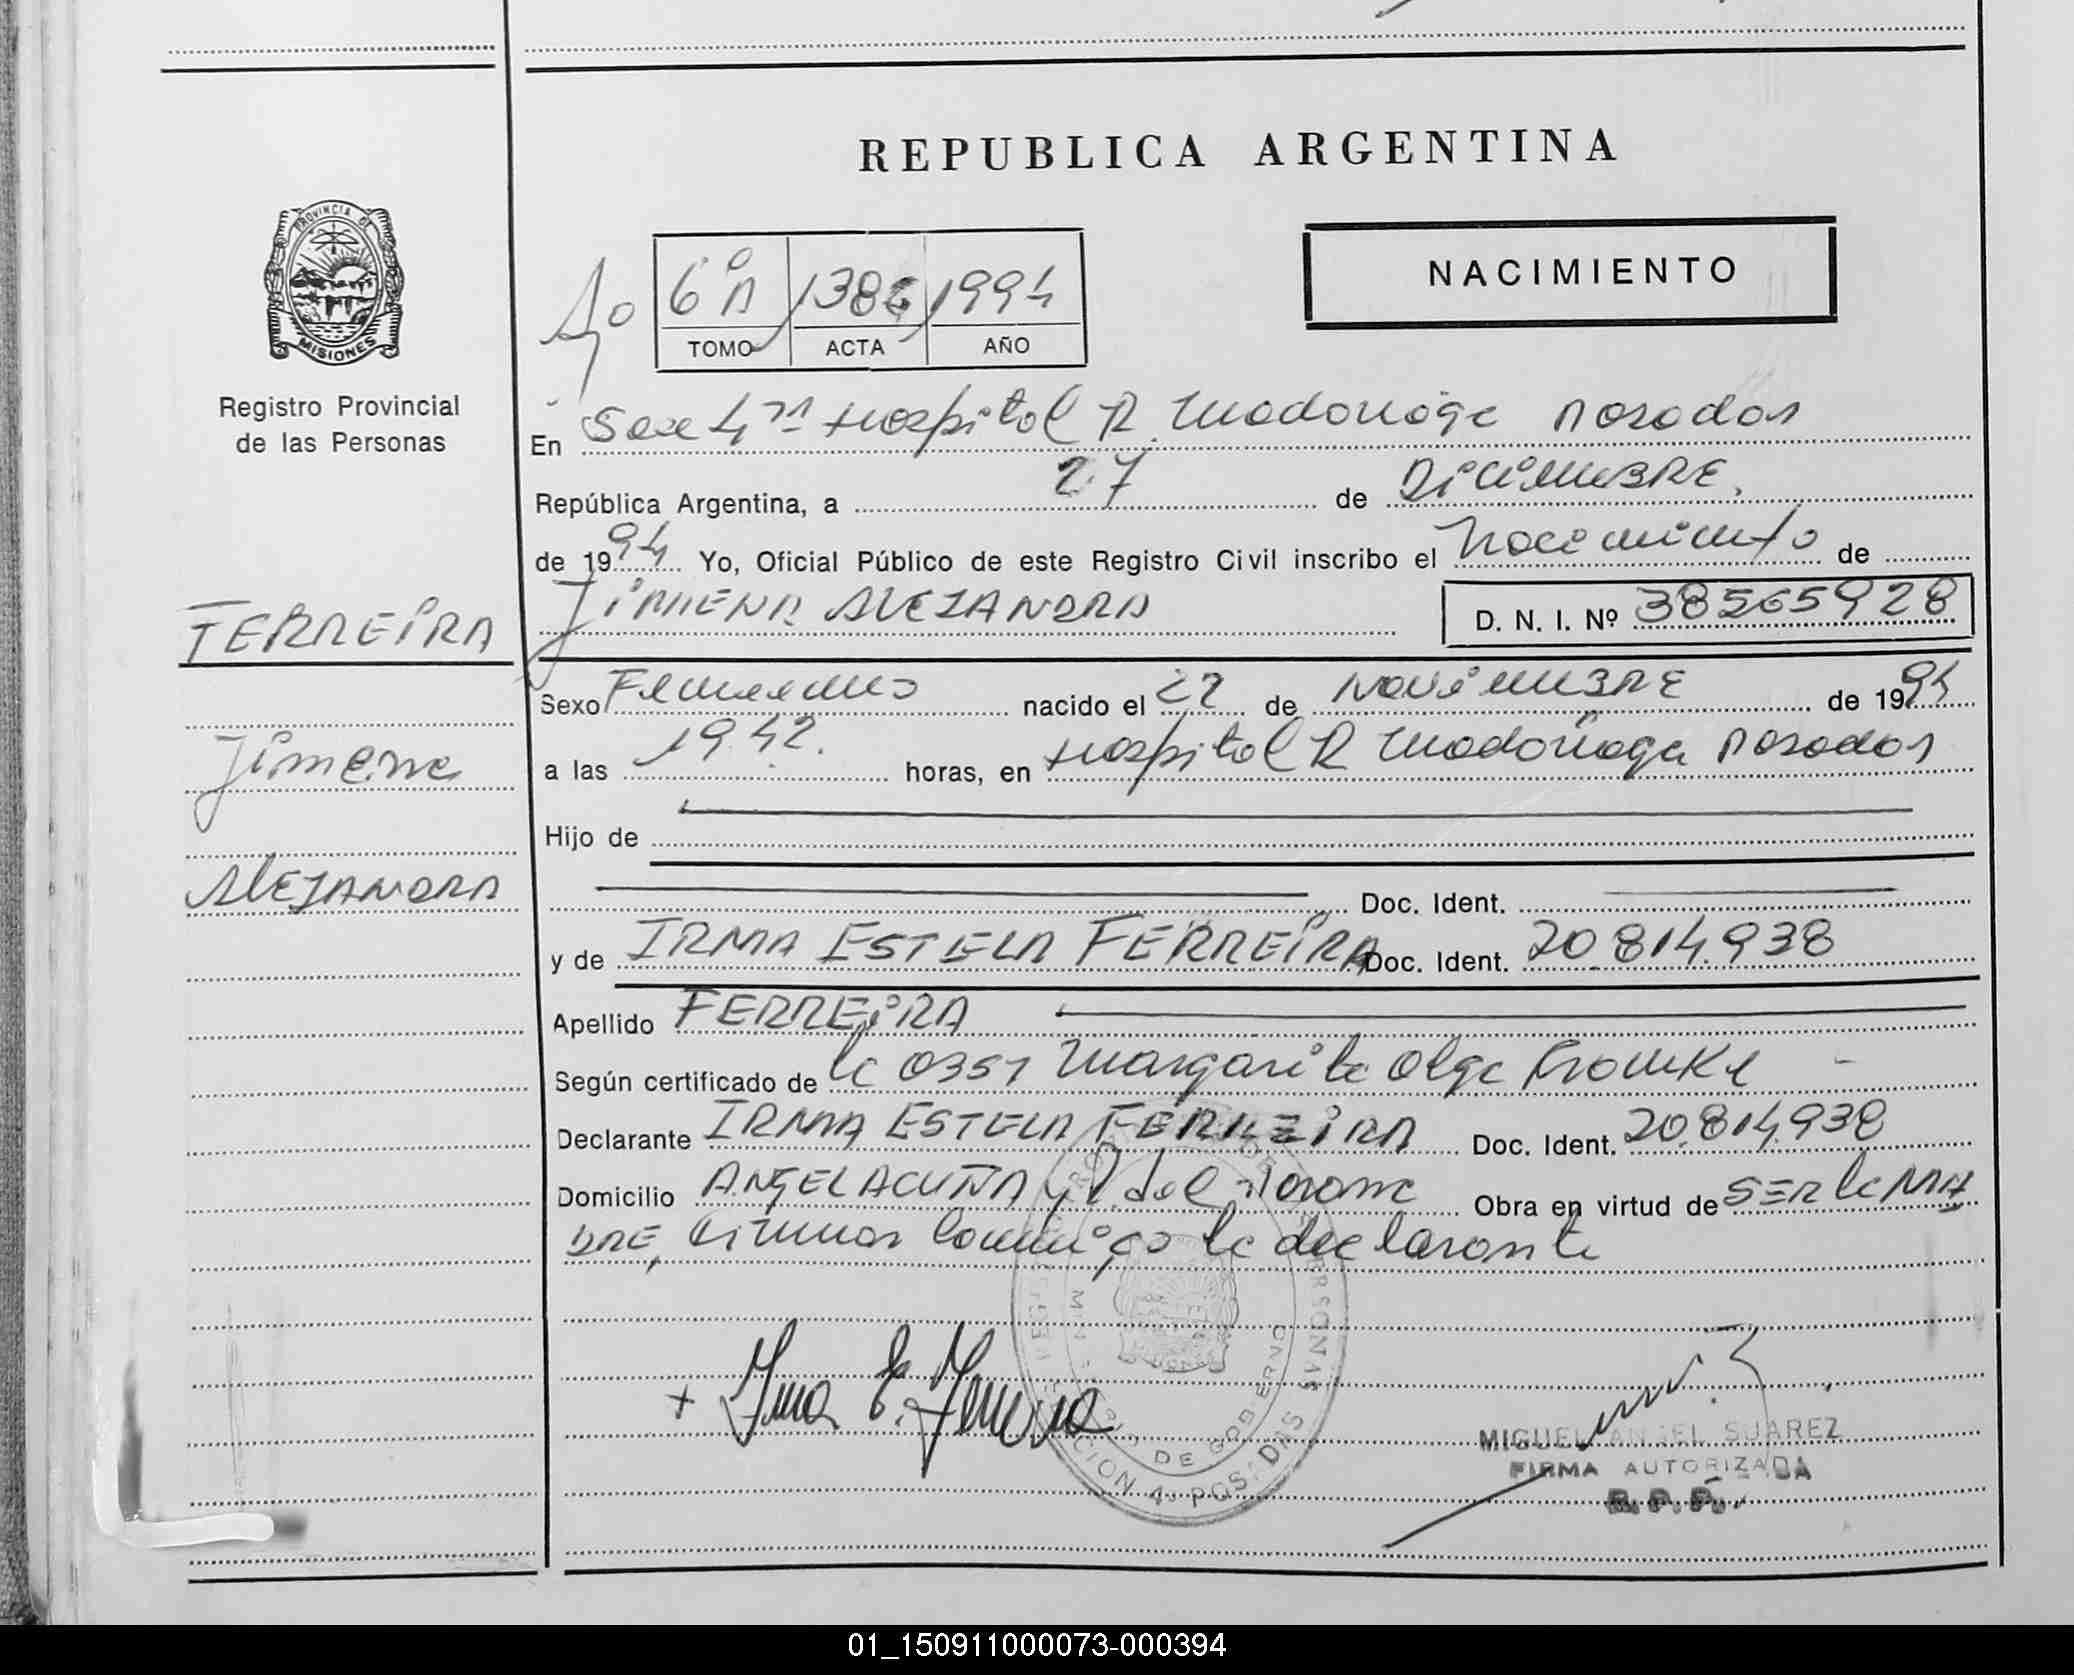 REPUBLICA ARGENTINA
NACIMIENTO
PROVINCIA DE
MISIONES
Registro Provincial
de las Personas
6º A 1386 1994
TOMO ACTA AÑO
En Sec 4ta Hospital R. Madariaga Posadas
República Argentina, a 27 de DiciemBRE
de 1994 Yo, Oficial Público de este Registro Civil inscribo el Nacimiento de
JIMENA ALEJANDRA D. N. I. Nº 38565928
FERREIRA
Jimena
ALEJANDRA
Sexo Femenino nacido el 22 de NoviemBRE de 1994
a las 19.42. horas, en Hospital R Madariaga Posadas
Hijo de
Doc. Ident.
y de IRMA ESTELA FERREIRA Doc. Ident. 20.814.938
Apellido FERREIRA
Según certificado de la 0351 Margarita Olga
Declarante IRMA ESTELA FERREIRA Doc. Ident. 20.814.938
Domicilio ANGEL ACUÑA y Obra en virtud de SER la MA
DRE, Firman conmigo la declarante
+ Irma E. Ferreira
MIGUEL ANGEL SUAREZ
FIRMA AUTORIZADA
R.P.P.
01_150911000073-000394